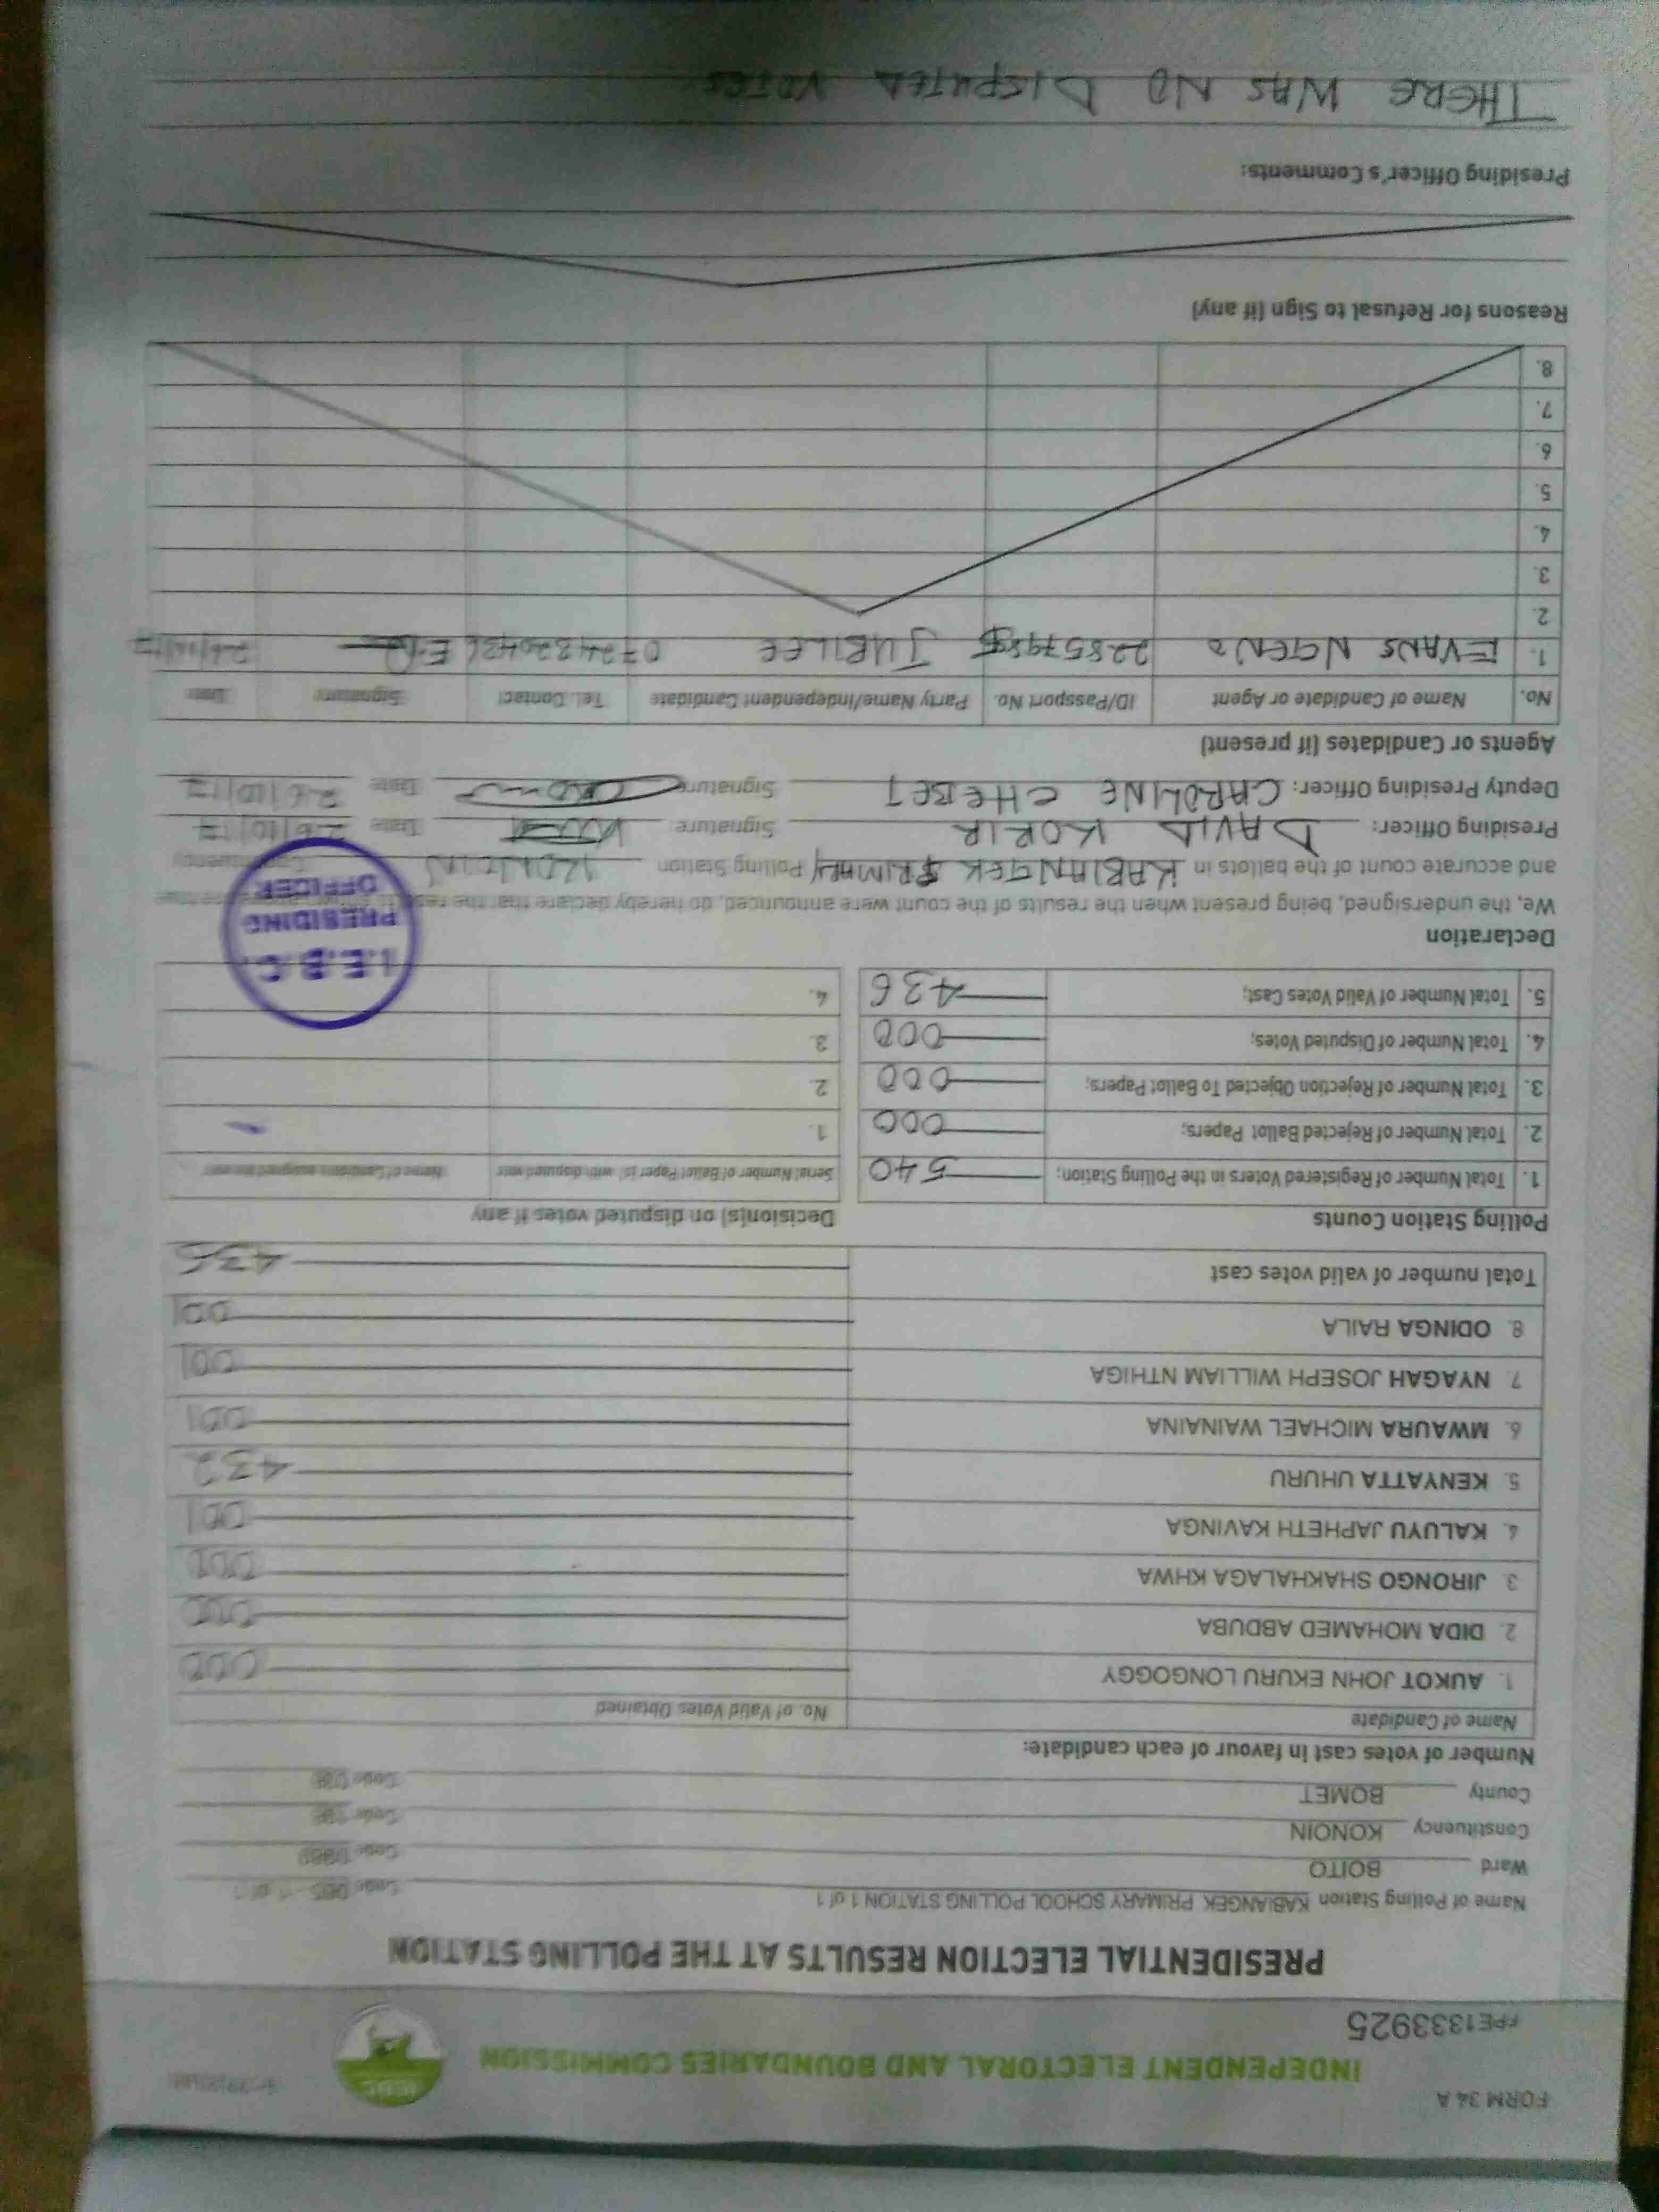 FORM 34 A
INDEPENDENT ELECTORAL AND BOUNDARIES COMMISSION
IEBC
FPE1333925
PRESIDENTIAL ELECTION RESULTS AT THE POLLING STATION
Name of Polling Station KABIANGEK PRIMARY SCHOOL POLLING STATION 1 of 1 Code
Ward BOITO Code 0969
Constituency KONOIN Code
County BOMET Code
Number of votes cast in favour of each candidate:
Name of Candidate No. of Valid Votes Obtained
1. AUKOT JOHN EKURU LONGOGGY 000
2. DIDA MOHAMED ABDUBA 000
3 JIRONGO SHAKHALAGA KHWA
4. KALUYU JAPHETH KAVINGA 001
5. KENYATTA UHURU 432
6. MWAURA MICHAEL WAINAINA 001
7. NYAGAH JOSEPH WILLIAM NTHIGA 001
8. ODINGA RAILA 001
Total number of valid votes cast 436
Polling Station Counts Decision(s) on disputed votes if any
1. Total Number of Registered Voters in the Polling Station; 540 Serial Number of Ballot Paper (s) with disputed vote Name of Candidate assigned the vote
2. Total Number of Rejected Ballot Papers; 000 1.
3. Total Number of Rejection Objected To Ballot Papers; 000 2.
4. Total Number of Disputed Votes; 000 3.
5. Total Number of Valid Votes Cast; 436 4.
I.E.B.C.
PRESIDING
OFFICER
Declaration
We, the undersigned, being present when the results of the count were announced, do hereby declare that the
and accurate count of the ballots in KABIANGEK PRIMARY Polling Station KONOIN Constituency
Presiding Officer: DAVID KORIR Signature: Date 26/10/17
Deputy Presiding Officer: CAROLINE CHEBET Signature Date 26/10/17
Agents or Candidates (if present)
No. Name of Candidate or Agent ID/Passport No. Party Name/Independent Candidate Tel. Contact Signature Date
1. EVANS NGENO JUBILEE 0724820486 26/10/17
2.
3.
4.
5.
6.
7.
8.
Reasons for Refusal to Sign (if any)
Presiding Officer's Comments:
THERE WAS NO DISPUTED VOTES